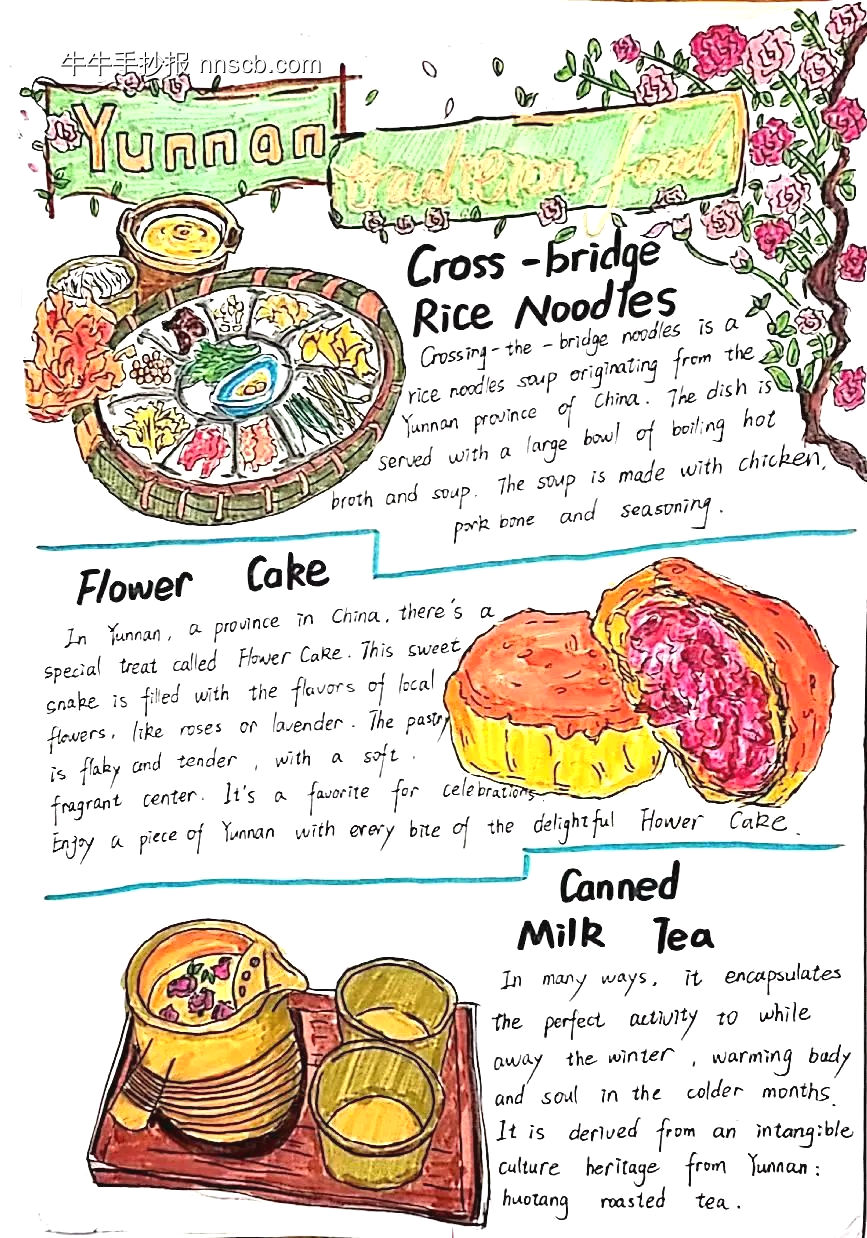 牛牛手抄报 nnscb.com
Yunnan
tradition food
Cross-bridge
Rice Noodles
Crossing-the-bridge noodles is a
rice noodles soup originating from the
Yunnan province of China. The dish is
served with a large bowl of boiling hot
broth and soup. The soup is made with chicken,
pork bone and seasoning.
Flower Cake
In Yunnan, a province in China, there's a
special treat called Flower Cake. This sweet
snake is filled with the flavors of local
flowers, like roses or lavender. The pastry
is flaky and tender, with a soft.
fragrant center. It's a favorite for celebrations.
Enjoy a piece of Yunnan with every bite of the delightful Flower Cake.
Canned
Milk Tea
In many ways, it encapsulates
the perfect activity to while
away the winter, warming body
and soul in the colder months.
It is derived from an intangible
culture heritage from Yunnan:
huotang roasted tea.